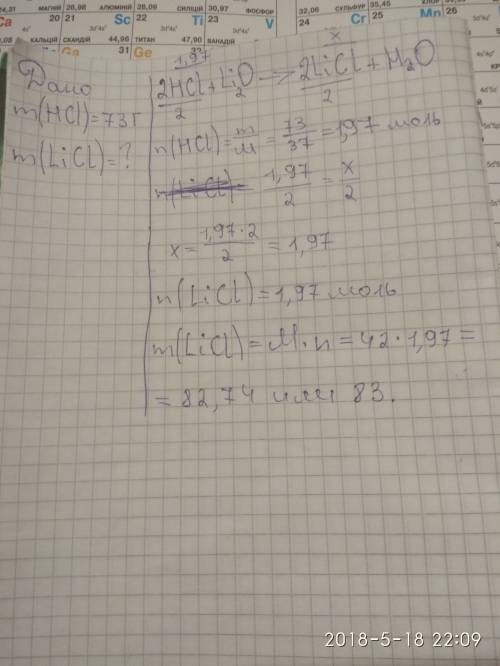 24,31 МАГНІЙ 26,98 АЛЮМІНІЙ 28,09 СИЛІЦІЙ 30,97 ФОСФОР 32,06 СУЛЬФУР 35,45
20 21 Sc 22 Ti 23 V 24 Cr 25 Mn 26
КАЛЬЦІЙ СКАНДІЙ 44,96 ТИТАН 47,90 ВАНАДІЙ
Ga 31 Ge
Дано
m(HCl)=73г
m(LiCl)=?
1,97 x
2HCl+Li₂O → 2LiCl+H₂O
2 2
n(HCl)=m/M=73/37=1,97 моль
n(LiCl) 1,97/2 = x/2
x=1,97·2/2=1,97
n(LiCl)=1,97 моль
m(LiCl)=M·n=42·1,97=
=82,74 или 83.
2018-5-18 22:09